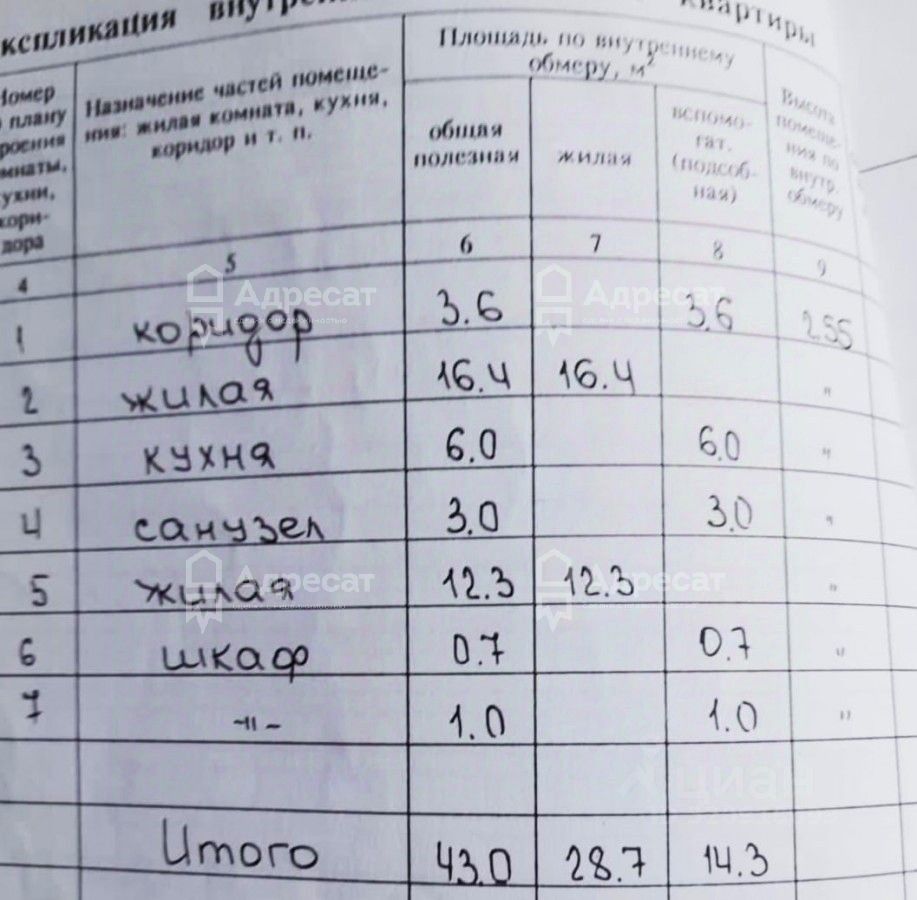 кспликация внутрен квартиры
Номер по плану строения комнаты, кухни, кори-дора
Назначение частей помеще-
ния: жилая комната, кухня,
коридор и т. п.
Площадь по внутреннему
обмеру, м²
общая
полезная
жилая
вспомо-
гат.
(подсоб-
ная)
Высота
помеще-
ния по
внутр.
обмеру
4 5 6 7 8 9
1 коридор 3.6 3.6 2.55
2 жилая 16.4 16.4 "
3 кухня 6.0 6.0 "
4 санузел 3.0 3.0 "
5 жилая 12.3 12.3 "
6 шкаф 0.7 0.7 "
7 -"- 1.0 1.0 "
Итого 43.0 28.7 14.3
Адресат
Адресат
Адресат
Адресат
Циан